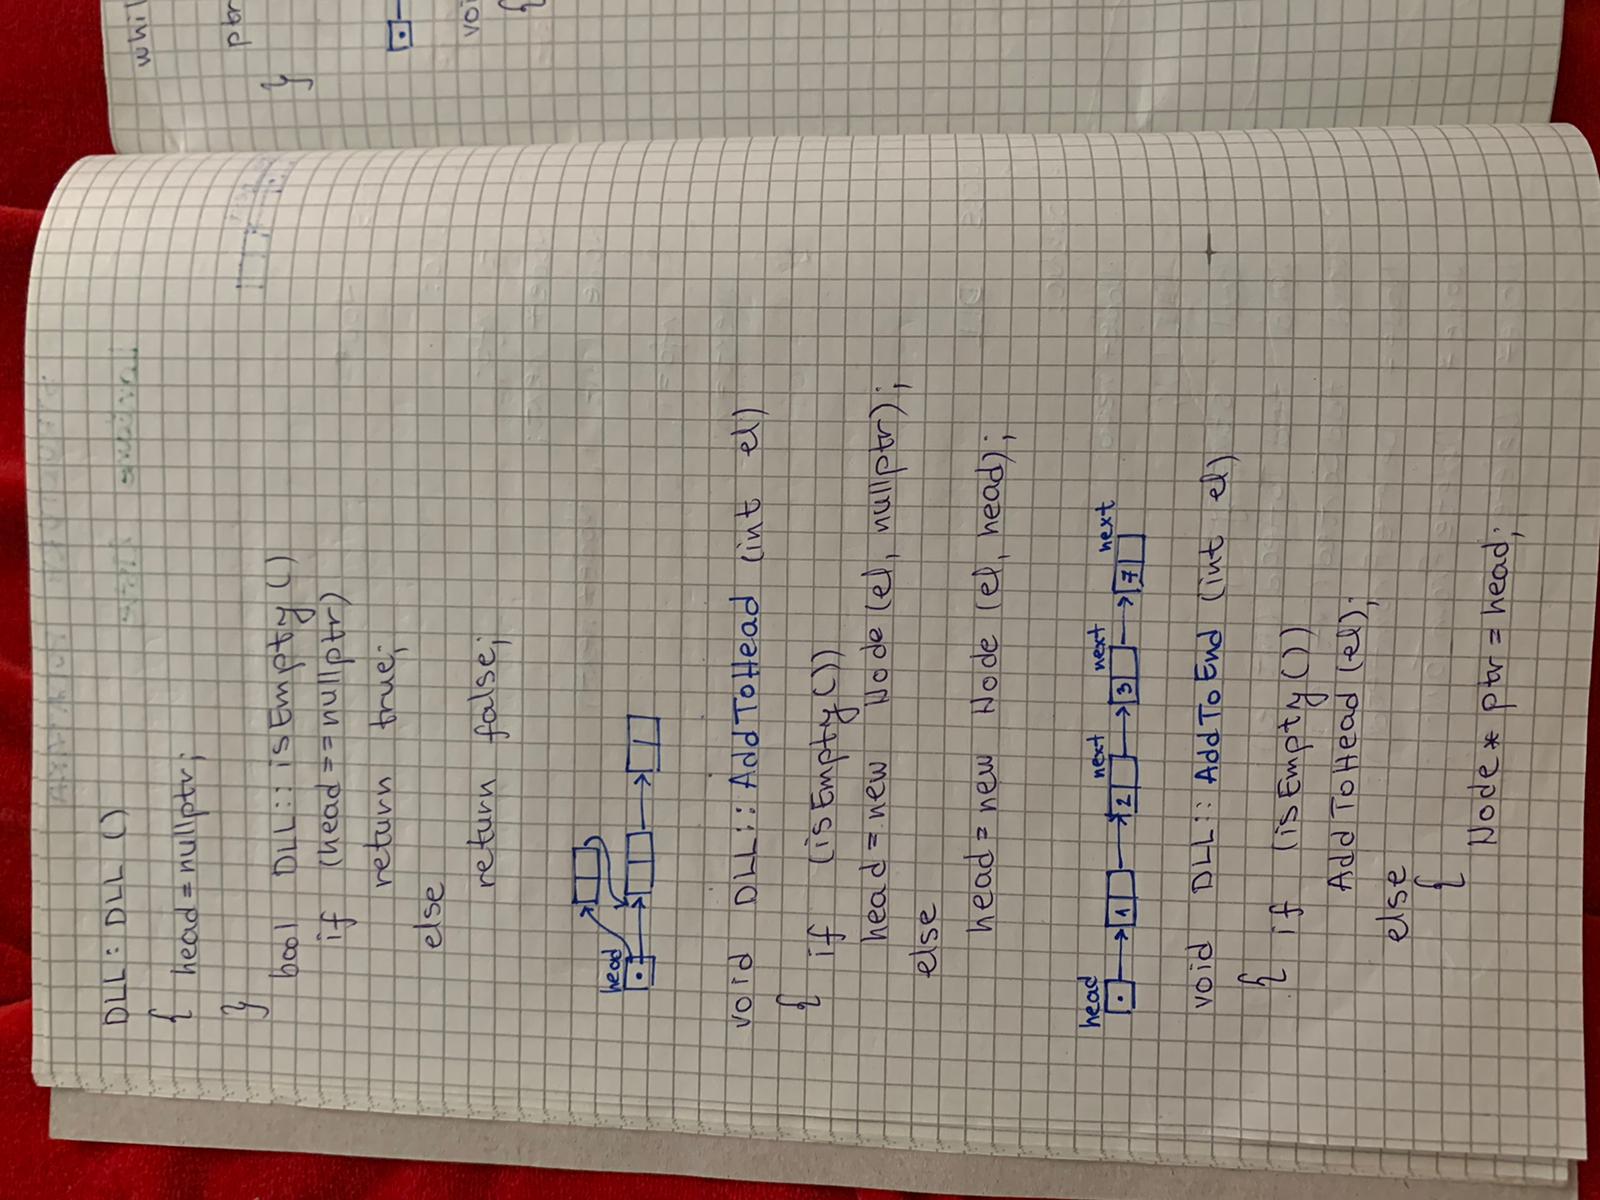 DLL::DLL ()
{ head = nullptr;
}
bool DLL::isEmpty()
if (head == nullptr)
return true;
else
return false;
head
void DLL::AddToHead (int el)
{ if (isEmpty())
head = new Node (el, nullptr);
else
head = new Node (el, head);
head next next next
1 2 3 7
void DLL::AddToEnd (int el)
{ if (isEmpty())
AddToHead (el);
else
{
Node * ptr = head;
whil
ptr
}
voi
{